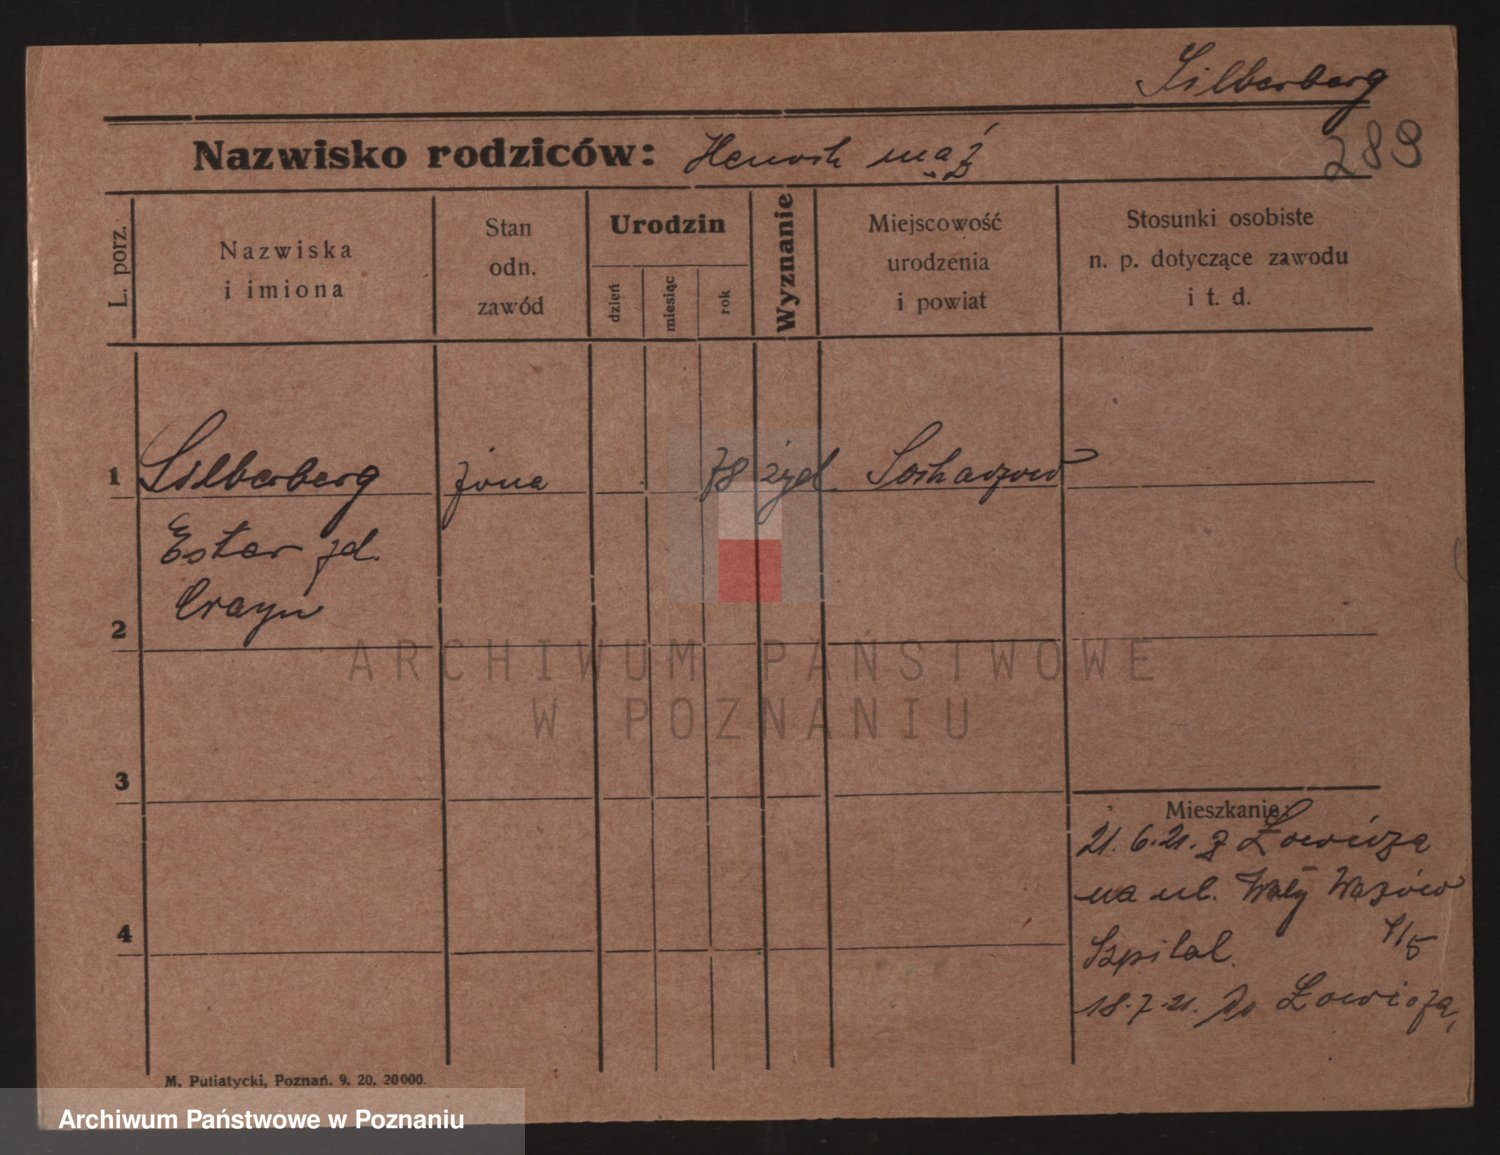 Silberberg
289
Nazwisko rodziców: Henoch mąż
L. porz.
Nazwiska
i imiona
Stan
odn.
zawód
Urodzin
dzień
miesiąc
rok
Wyznanie
Miejscowość
urodzenia
i powiat
Stosunki osobiste
n. p. dotyczące zawodu
i t. d.
1 Silberberg żona 78 żyd. Sochaczew
Ester żd.
2
3
4
Mieszkanie:
21.6.21. z Łowicza
na ul. Wały Wazów
4/5
Szpital.
18.7.21. do Łowicza,
ARCHIWUM PAŃSTWOWE
W POZNANIU
M. Putiatycki, Poznań. 9. 20. 20000.
Archiwum Państwowe w Poznaniu